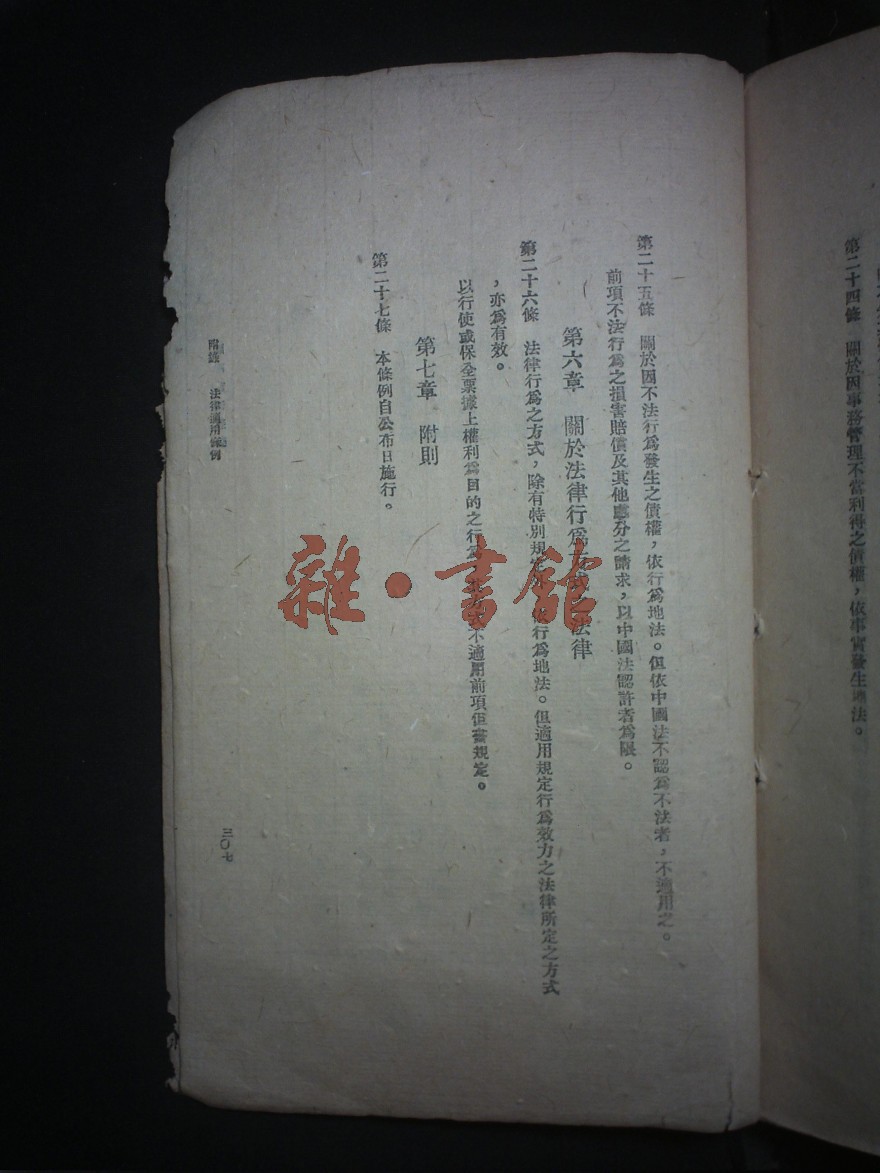 第二十四條　關於因事務管理不當利得之債權，依事實發生地法。
第二十五條　關於因不法行爲發生之債權，依行爲地法。但依中國法不認爲不法者，不適用之。
前項不法行爲之損害賠償及其他處分之請求，以中國法認許者爲限。
第六章　關於法律行爲　法律
第二十六條　法律行爲之方式，除有特別規定　行爲地法。但適用規定行爲效力之法律所定之方式
，亦爲有效。
以行使或保全票據上權利爲目的之行爲　不適用前項但書規定。
第七章　附則
第二十七條　本條例自公布日施行。
附錄　法律適用條例
三〇七
雜·書館